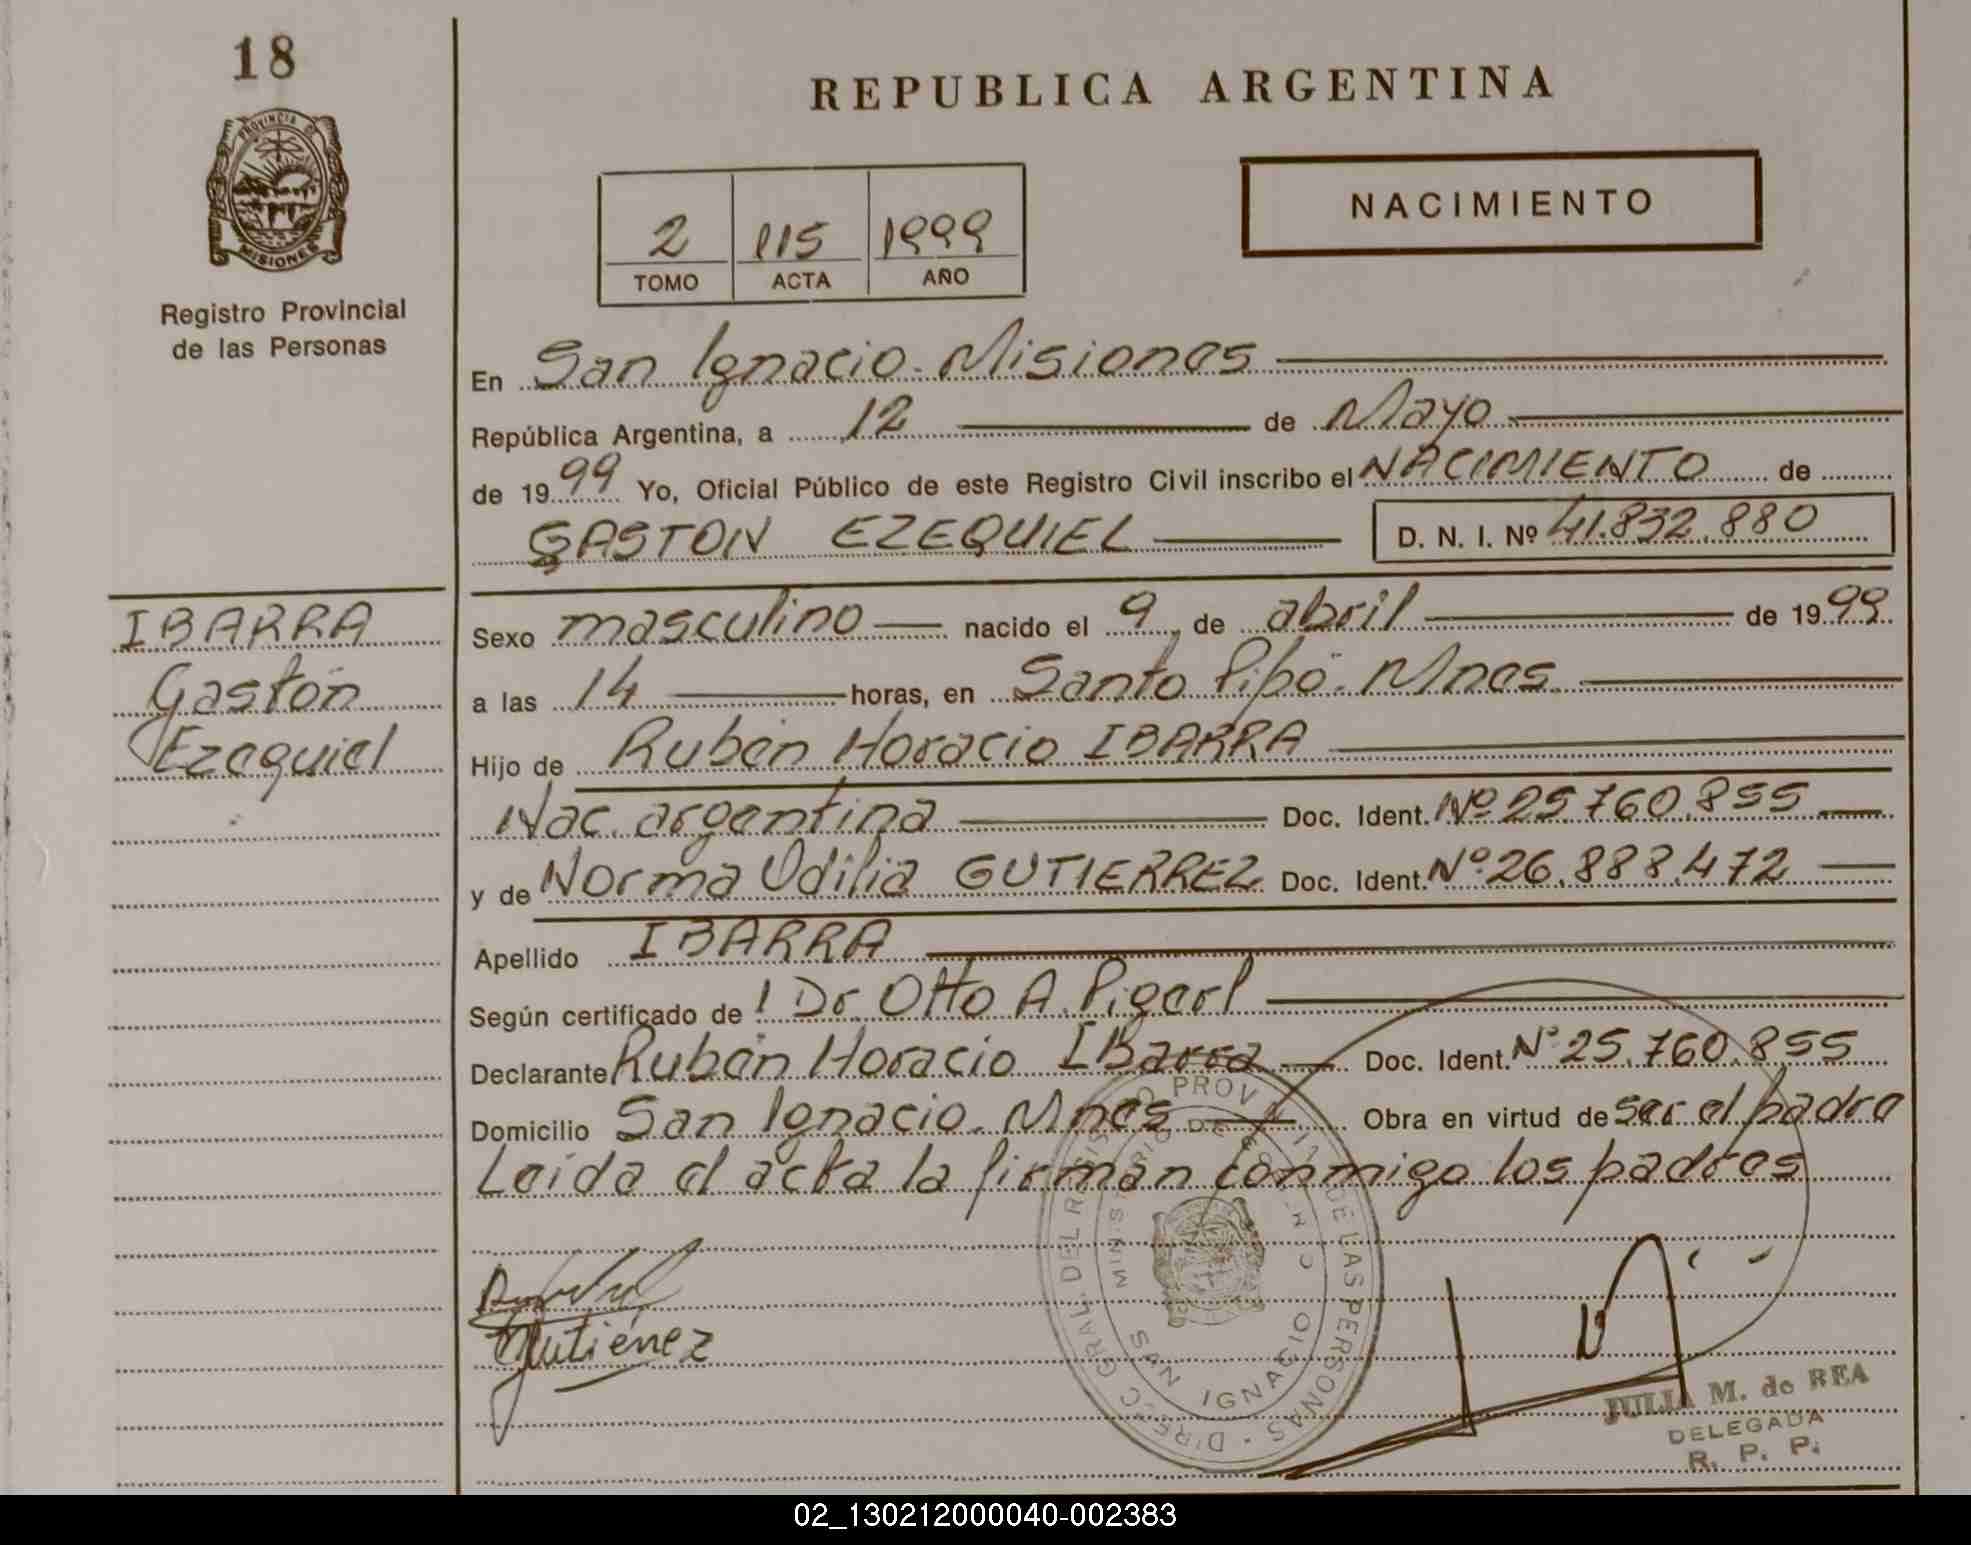 18
PROVINCIA DE
MISIONES
Registro Provincial
de las Personas
REPUBLICA ARGENTINA
2 115 1999
TOMO ACTA AÑO
NACIMIENTO
En San Ignacio. Misiones
República Argentina, a 12 de Mayo
de 1999 Yo, Oficial Público de este Registro Civil inscribo el NACIMIENTO de
GASTON EZEQUIEL D. N. I. Nº 41.832.880
IBARRA
Gastón
Ezequiel
Sexo masculino nacido el 9 de abril de 1999
a las 14 horas, en Santo Pipó. Mnes.
Hijo de Rubén Horacio IBARRA
Nac. argentina Doc. Ident. Nº 25.760.855
y de Norma Odilia GUTIERREZ Doc. Ident. Nº 26.888.472
Apellido IBARRA
Según certificado de l Dr. Otto A. Pigerl
Declarante Rubén Horacio IBarra Doc. Ident. Nº 25.760.855
Domicilio San Ignacio. Mnes Obra en virtud de ser el padre
Leída el acta la firman conmigo los padres
Gutiérrez
SAN IGNACIO
JULIA M. de REA
DELEGADA
R. P. P.
02_130212000040-002383